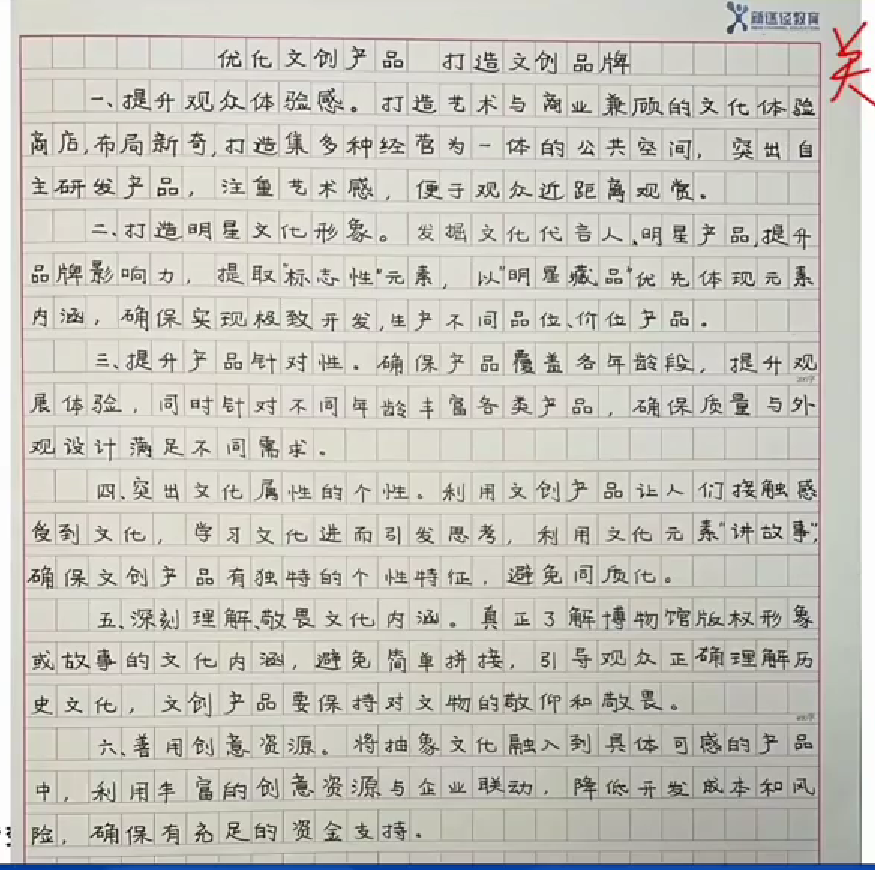 新途径教育
NEW CHANNEL EDUCATION
关
优化文创产品 打造文创品牌
一、提升观众体验感。打造艺术与商业兼顾的文化体验
商店,布局新奇,打造集多种经营为一体的公共空间,突出自
主研发产品,注重艺术感,便于观众近距离观赏。
二、打造明星文化形象。发掘文化代言人、明星产品,提升
品牌影响力,提取"标志性"元素,以"明星藏品"优先体现元素
内涵,确保实现极致开发,生产不同品位、价位产品。
三、提升产品针对性。确保产品覆盖各年龄段,提升观
200字
展体验,同时针对不同年龄丰富各类产品,确保质量与外
观设计满足不同需求。
四、突出文化属性的个性。利用文创产品让人们接触感
受到文化,学习文化进而引发思考,利用文化元素"讲故事",
确保文创产品有独特的个性特征,避免同质化。
五、深刻理解、敬畏文化内涵。真正了解博物馆版权形象
或故事的文化内涵,避免简单拼接,引导观众正确理解历
史文化,文创产品要保持对文物的敬仰和敬畏。
400字
六、善用创意资源。将抽象文化融入到具体可感的产品
中,利用丰富的创意资源与企业联动,降低开发成本和风
险,确保有充足的资金支持。